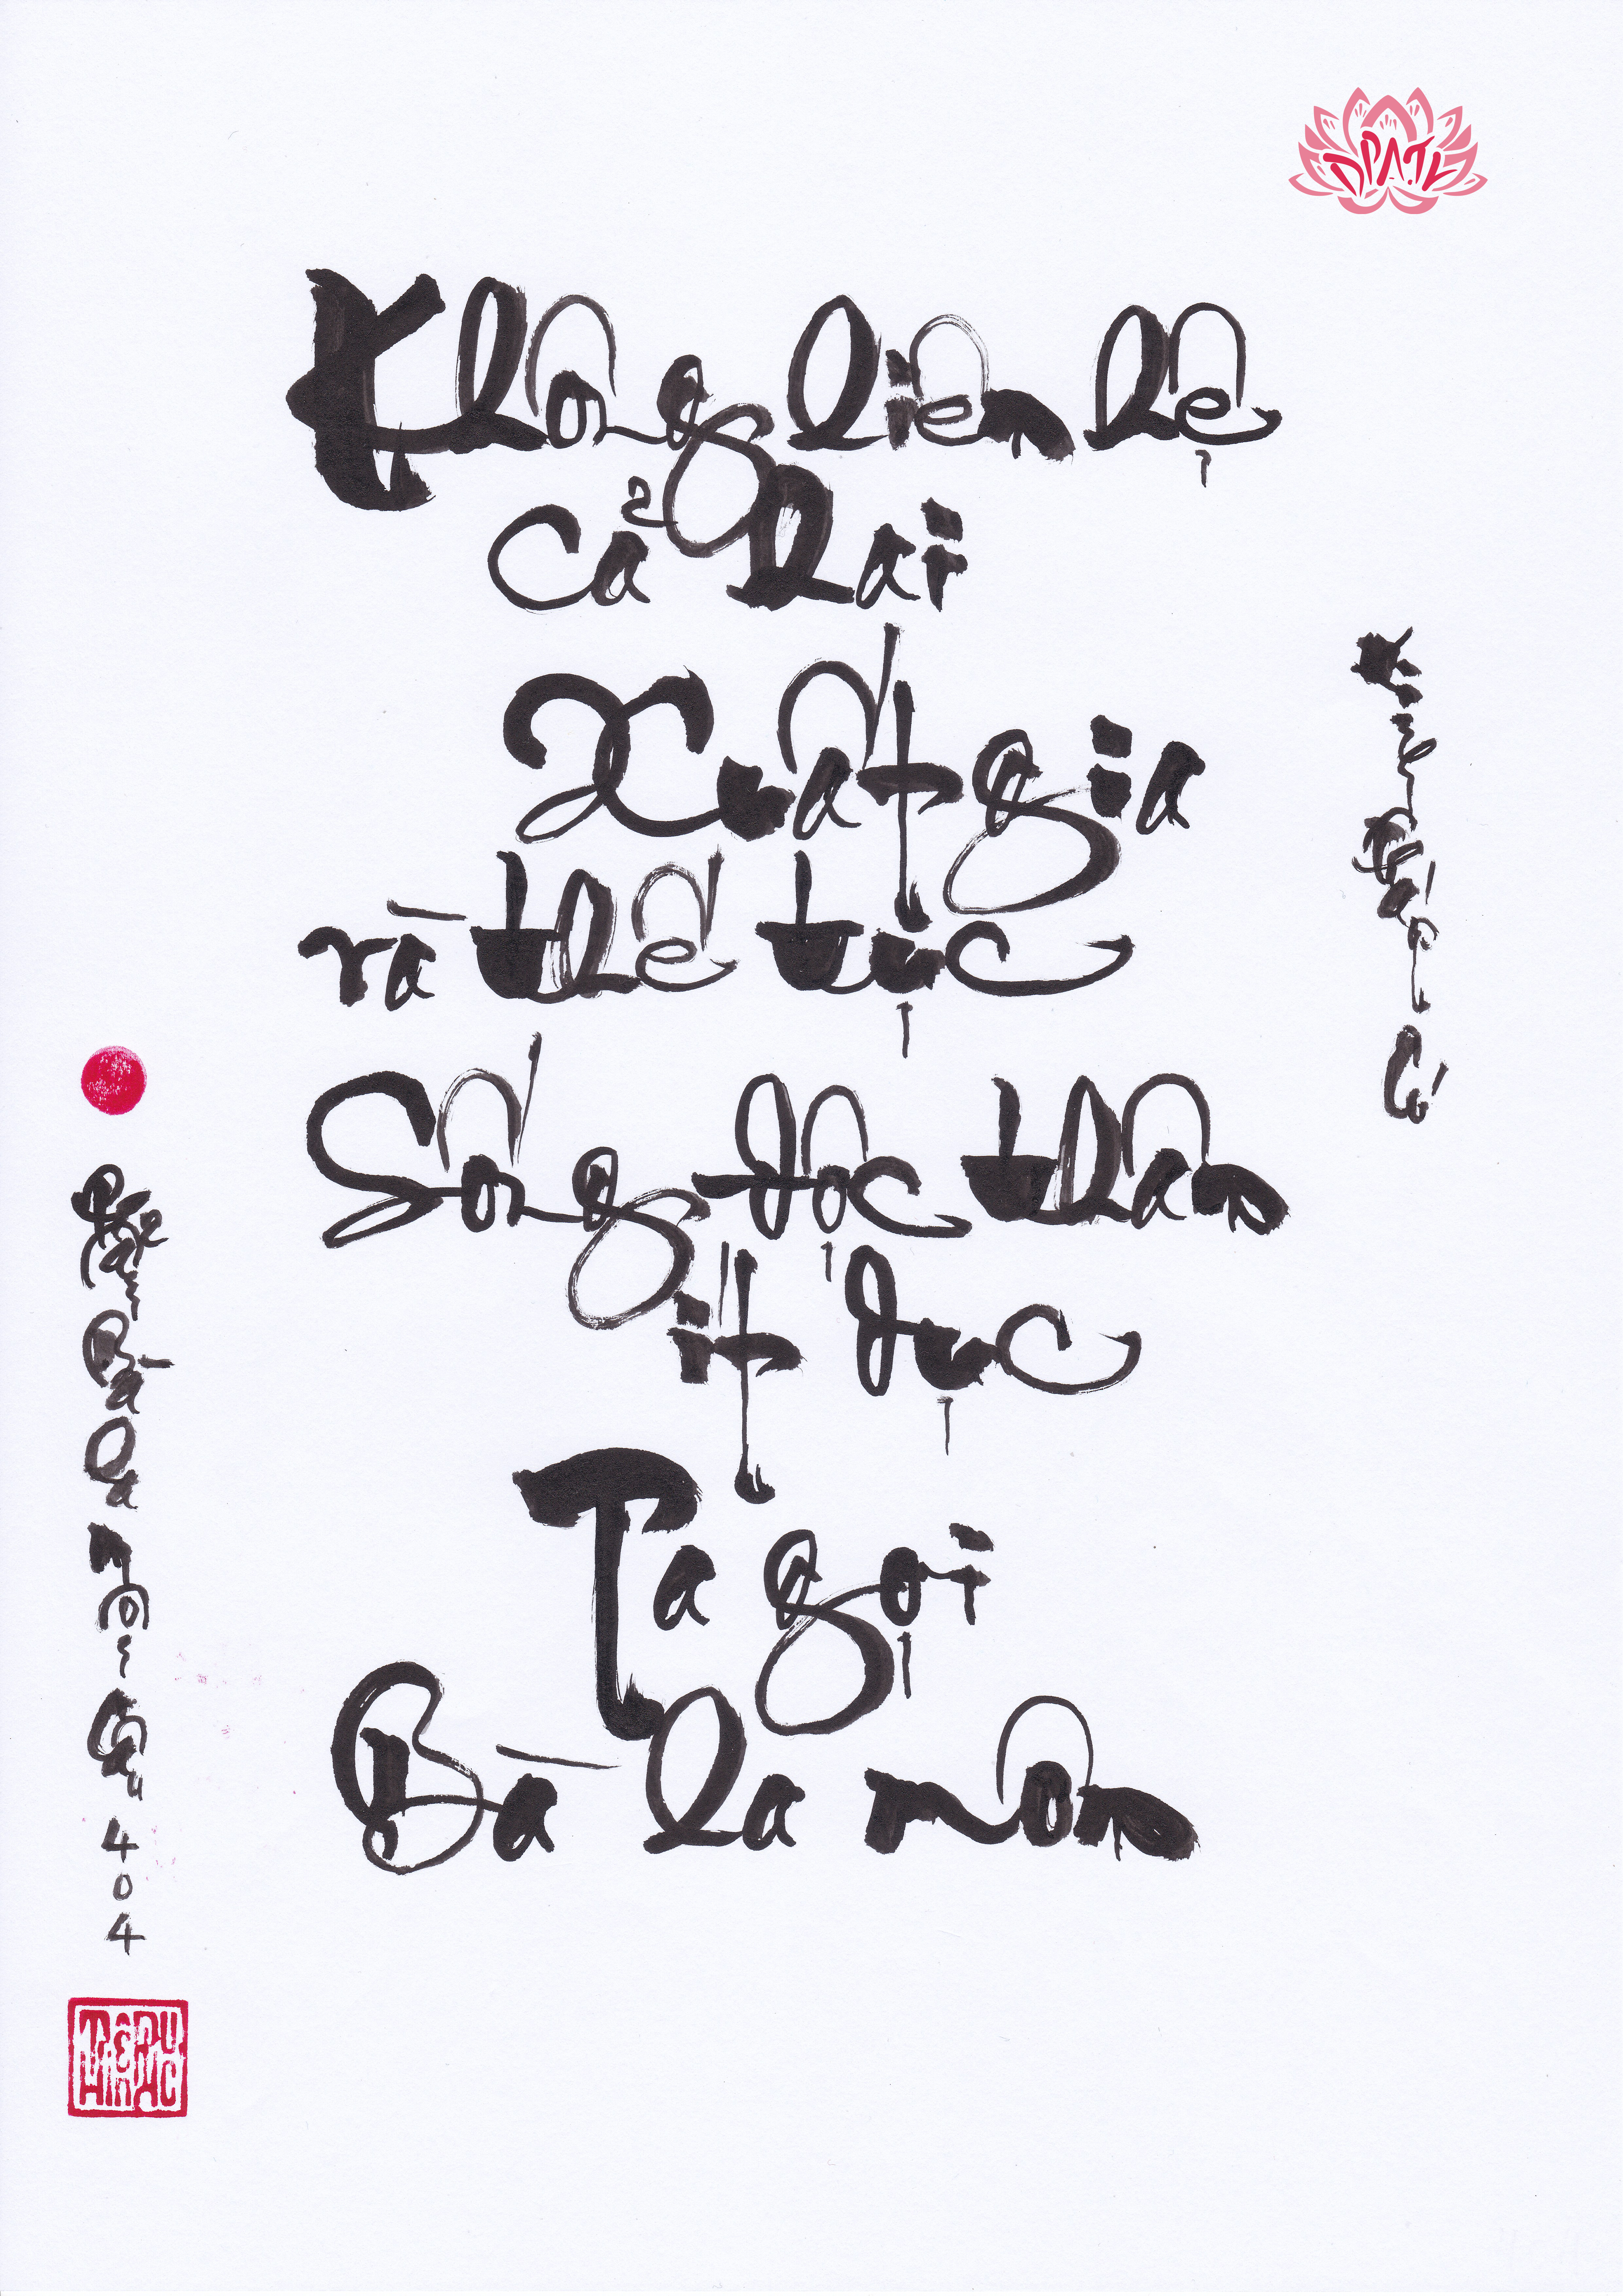 DPATL
Không liên hệ
cả hai
Xuất gia
và thế tục
Sống độc thân
ít dục
Ta gọi
Bà la môn
Kinh Pháp Cú
Phẩm Bà La môn
Câu 404